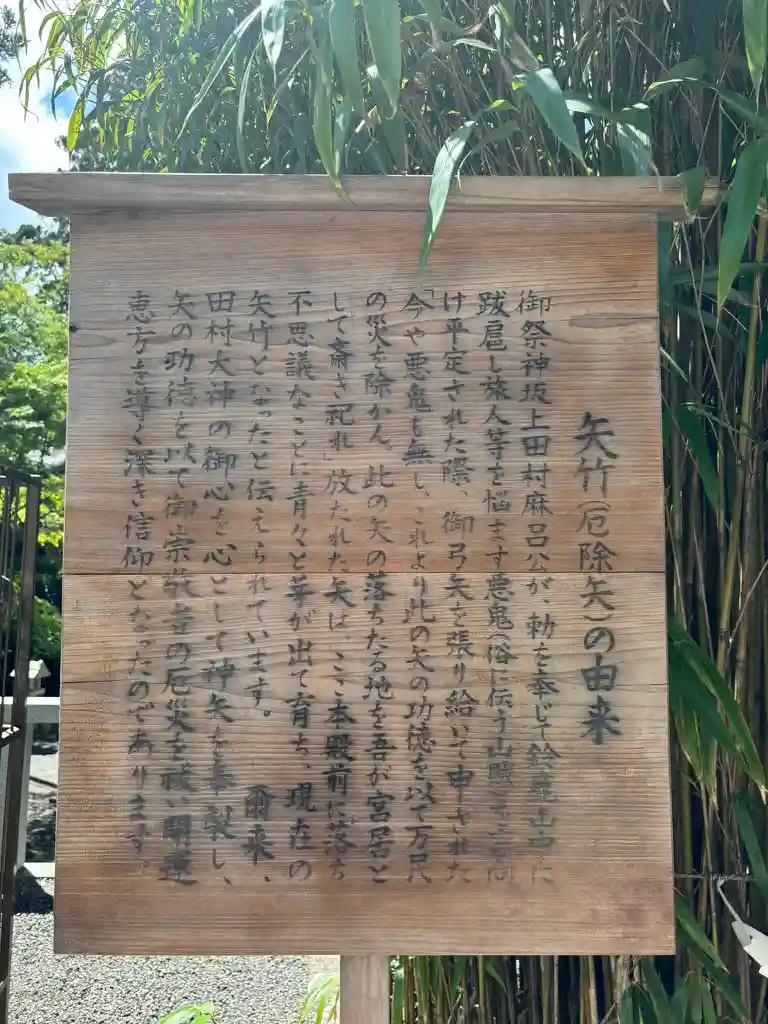 矢竹(厄除矢)の由来
御祭神坂上田村麻呂公が、勅を奉じて鈴鹿山中に
跋扈し旅人等を悩ます悪鬼(俗に伝う山賊)を
け平定された際、御弓矢を張り給いて申された
「今や悪鬼も無し、これより此の矢の功徳を以て万民
の災を除かん。此の矢の落ちたる地を吾が宮居と
して斎き祀れ」放たれた矢は、ここ本殿前に落ち
不思議なことに青々と芽が出て育ち、現在の
矢竹となったと伝えられています。 爾来、
田村大神の御心を心として神矢を奉製し、
矢の功徳を以て御崇敬者の厄災を祓い開運
恵方を導く深き信仰となったのであります。